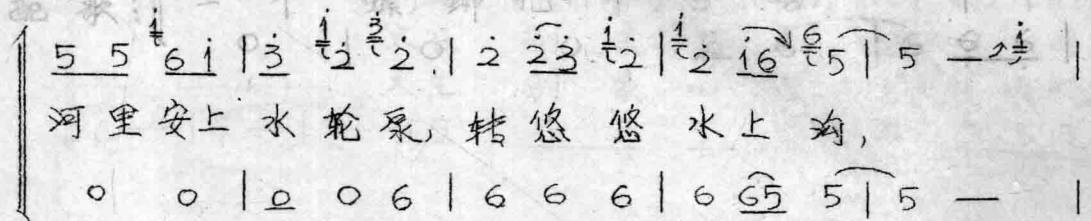 5 5 6 i | 3 2 2 | 2 2 3 2 | 2 i 6 5 | 5 — |
河里安上水轮泵，转悠悠水上沟，
0 0 | 0 0 6 | 6 6 6 | 6 65 5 | 5 — |